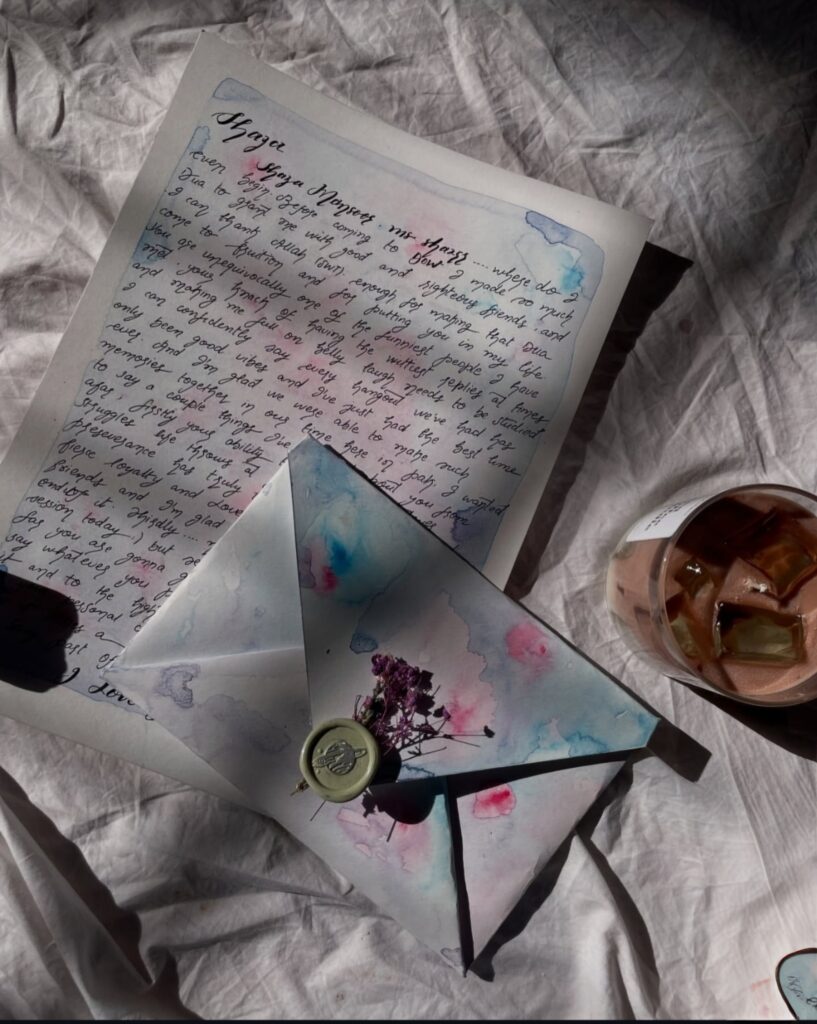 Shaza
Shaza Mansoor ms shazz .... where do I
even begin. Before coming to I made so much
Dua to grant me with good and righteous friends, and
I can thank Allah (swt) enough for making that Dua
come to fruition and for putting you in my life
You are unequivocally one of the funniest people I have
met your knack of having the wittiest replies at times
and making me full on belly laugh needs to be studied
I can confidently say every hangout we've had has
only been good vibes and I've just had the best time
ever and I'm glad we were able to make such
memories together in our time here in I wanted
to say a couple things I've about you from
afar, firstly your ability
struggles life throws at
perseverance has truly
fierce loyalty and love
friends and I'm glad
end of it. thirdly ....
session today :) but
far you are gonna
say whatever you
it and to the
personal
a
of
Love